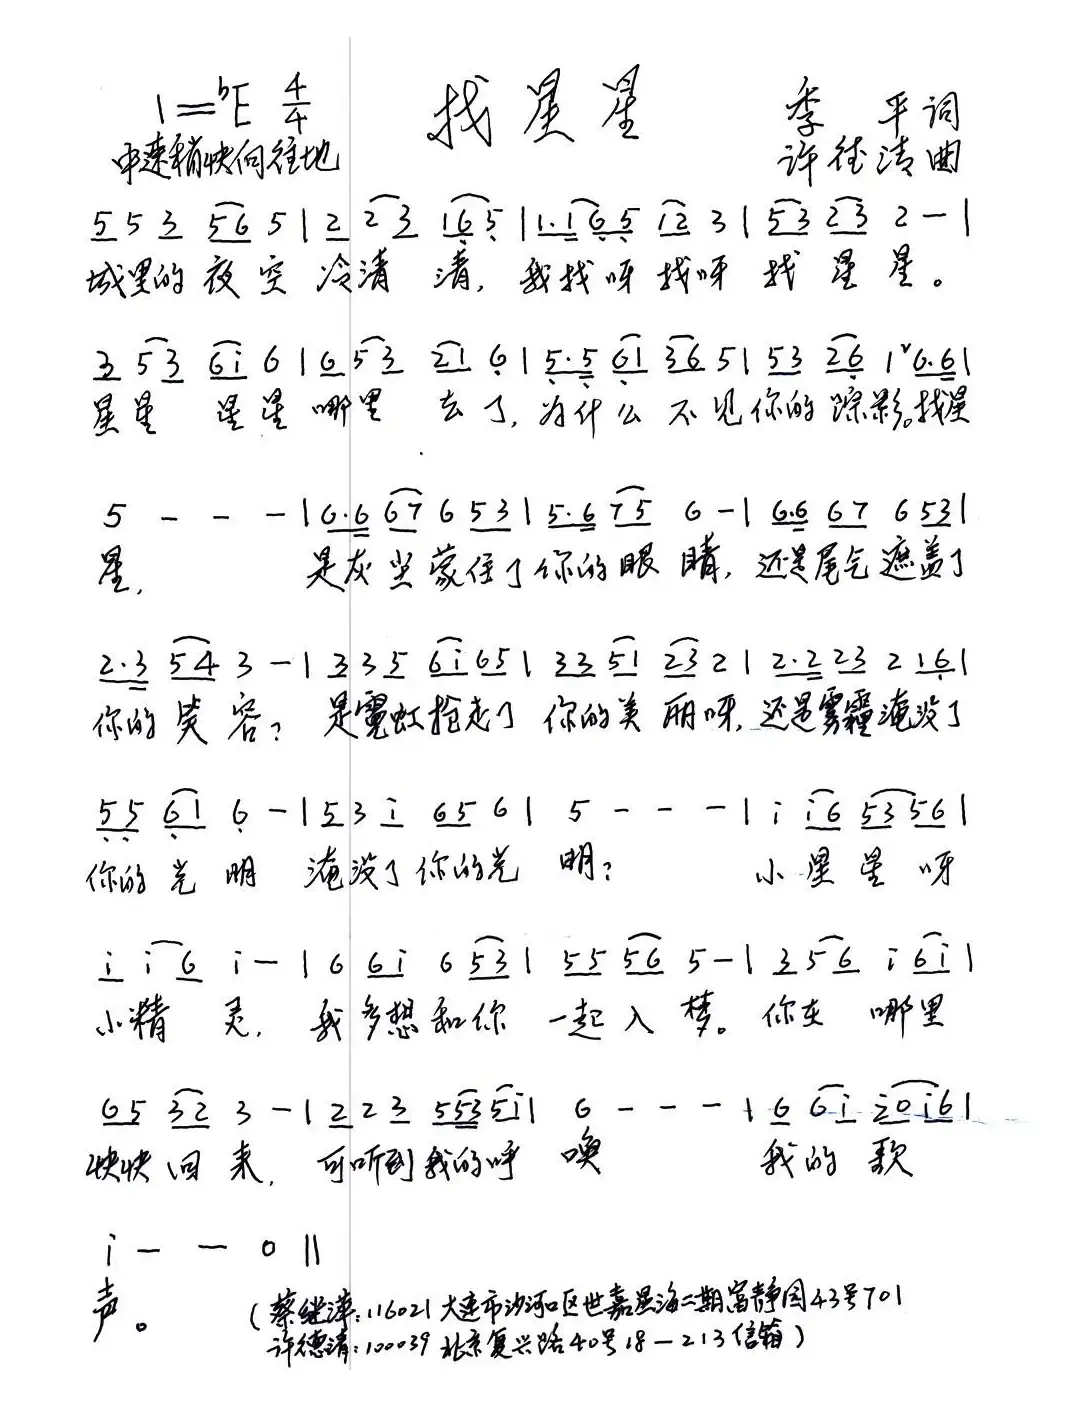 1=♭E 4/4 找星星 季 平词
中速稍快向往地 许德清曲
5 5 3 56 5 | 2 2 3 16 5 | 1.1 65 12 3 | 53 23 2 — |
城里的夜空冷清清,我找呀找呀找星星。
3 5 3 6i 6 | 6 53 21 6 | 5.5 61 36 5 | 53 26 1ˇ6.6 |
星星 星星哪里去了,为什么不见你的踪影。找星
5 — — — | 6.6 67 6 53 | 5.6 75 6 — | 6.6 67 6 53 |
星, 是灰尘蒙住了你的眼睛,还是尾气遮盖了
2.3 54 3 — | 3 3 5 6i 65 | 33 51 23 2 | 2.2 23 2 16 |
你的笑容?是霓虹抢走了你的美丽呀,还是雾霾淹没了
55 61 6 — | 5 3 i 65 6 | 5 — — — | i i6 53 56 |
你的光明 淹没了你的光明? 小星星呀
i i 6 i — | 6 6i 6 53 | 55 56 5 — | 3 5 6 i 6i |
小精灵,我多想和你一起入梦。你在哪里
65 32 3 — | 2 2 3 553 5i | 6 — — — | 6 6i 20 i6 |
快快回来,可听到我的呼唤 我的歌
i — — 0 ||
声。 (蔡继萍:116021 大连市沙河口区世嘉星海二期富静园43号701
许德清:100039 北京复兴路40号18—213信箱)